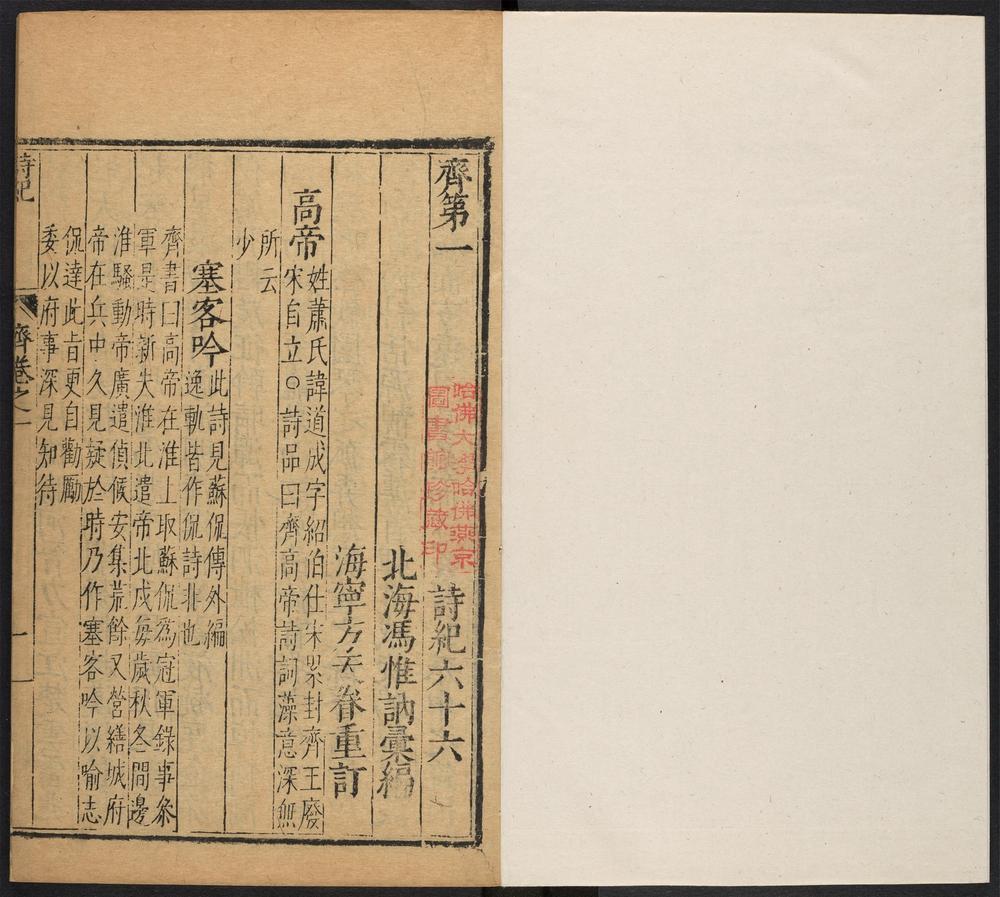 齊第一
詩紀六十六
哈佛大學哈佛燕京
圖書館珍藏印
北海馮惟訥彙編
海寧方天眷重訂
高帝
姓蕭氏諱道成字紹伯仕宋累封齊王廢
宋自立○詩品曰齊高帝詩詞藻意深無
所云
少
塞客吟
此詩見蘇侃傳外編
逸軌皆作侃詩非也
齊書曰高帝在淮上取蘇侃爲冠軍錄事參
軍是時新失淮北遣帝北戍每歲秋冬間邊
淮騷動帝廣遣偵候安集荒餘又營繕城府
帝在兵中久見疑於時乃作塞客吟以喻志
侃達此旨更自勸勵
委以府事深見知待
詩紀
齊卷之一
一